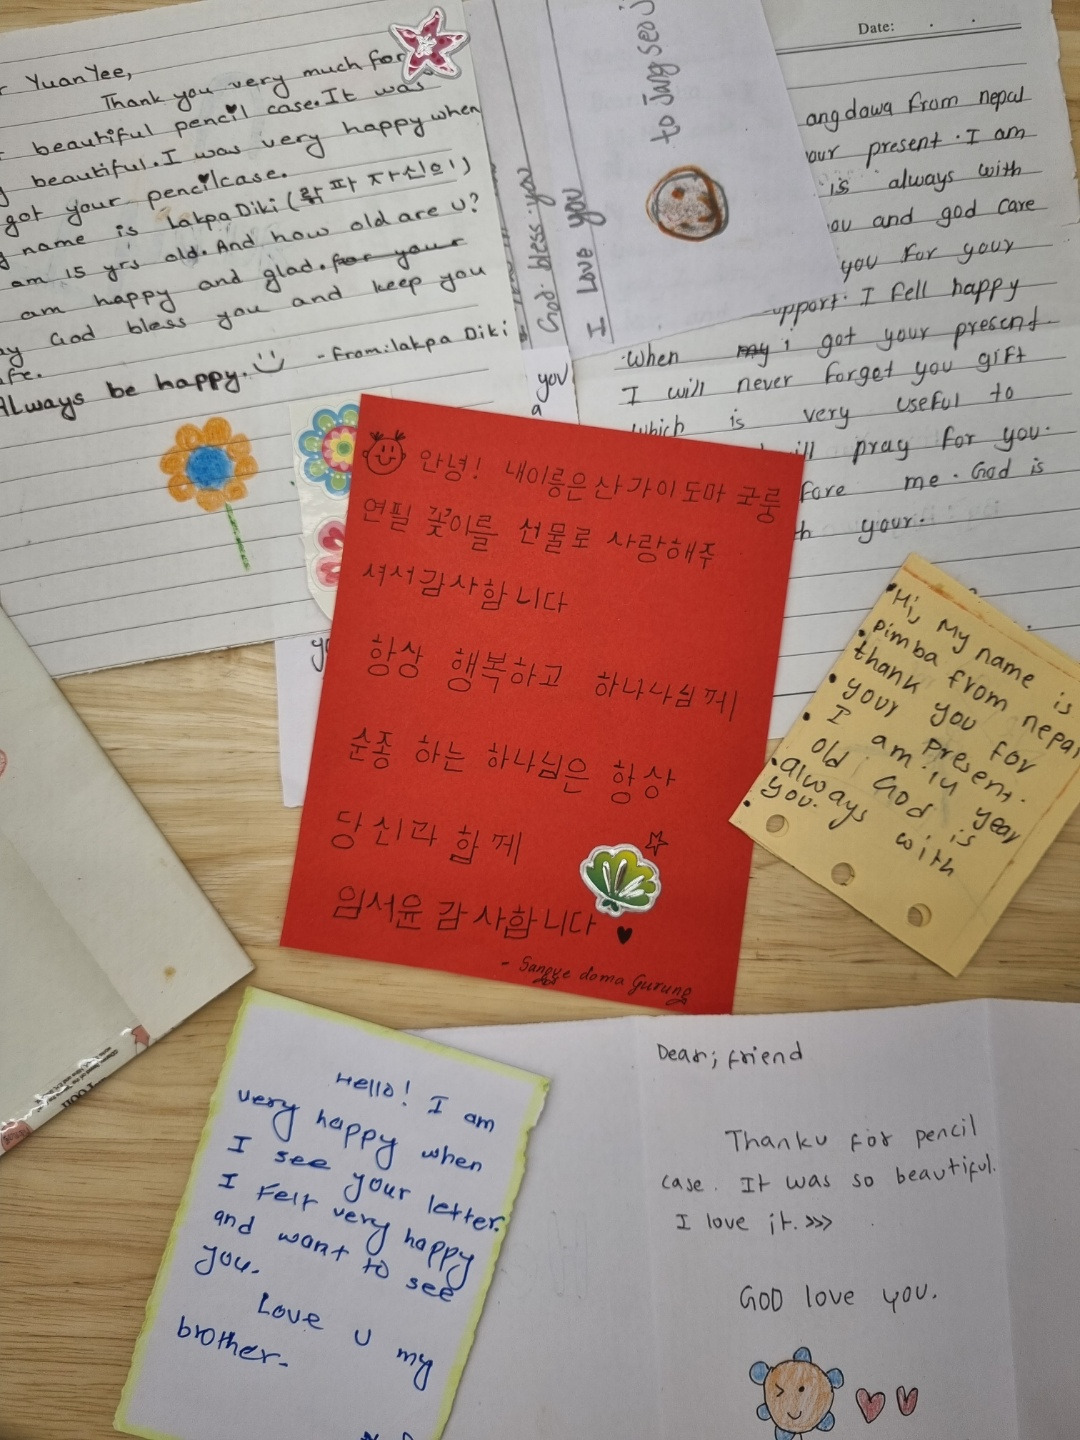 YuanYee,
Thank you very much for
beautiful pencil case. It was
beautiful. I was very happy when
got your pencilcase.
name is Lakpa Diki (락파 자신의)
am 15 yrs old. And how old are u?
am happy and glad. for your
God bless you and keep you
Always be happy. - From: lakpa Diki
God bless you
I Love you
to jung seo
you
a
Date: . .
ang dawa from nepal
our present. I am
is always with
you and god care
you for your
support. I fell happy
when my i got your present.
I will never forget you gift
which is very useful to
ill pray for you.
fore me. God is
h your.
안녕! 내이릉은 산가이 도마 구룽
연필 꽂이를 선물로 사랑해주
셔서 감사합니다
항상 행복하고 하나나님께
순종 하는 하나님은 항상
당신과 함께
임서윤 감사합니다
- Sangye doma Gurung
Hi, My name is
pimba from nepal
thank you for
your present.
I am 14 year
old. God is
always with
you.
Hello! I am
very happy when
I see your letter.
I Felt very happy
and want to see
you.
Love u my
brother-
Dear; friend
Thanku for pencil
case. It was so beautiful.
I love it.>>>
GOD love you.